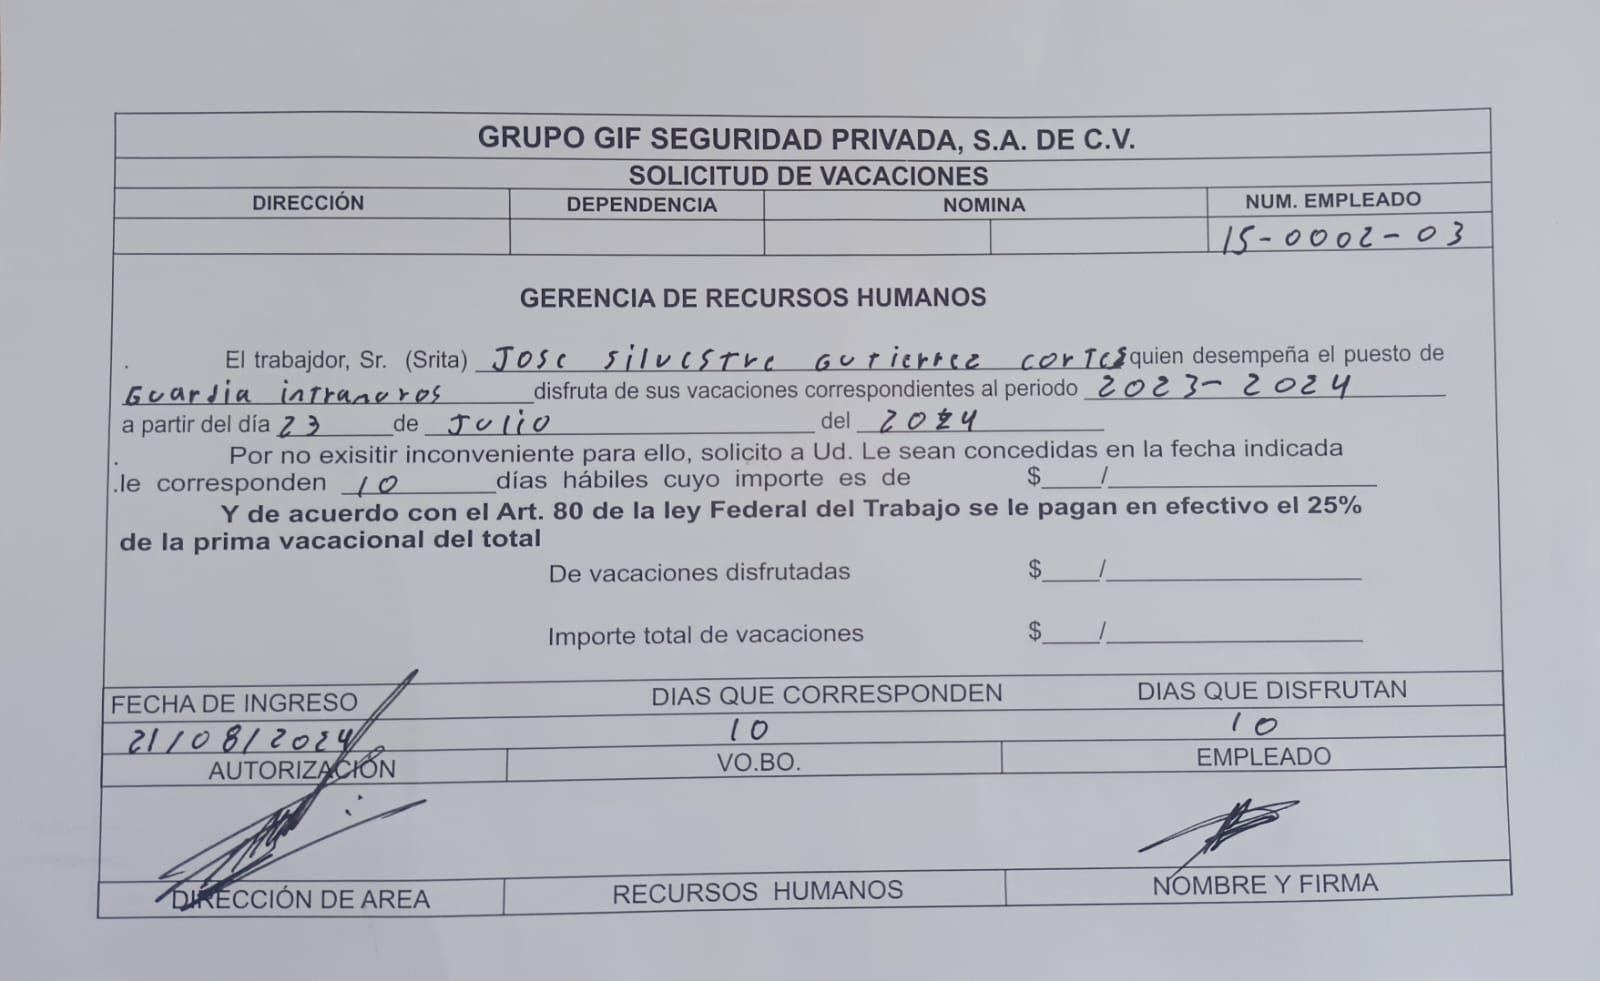 GRUPO GIF SEGURIDAD PRIVADA, S.A. DE C.V.
SOLICITUD DE VACACIONES
DIRECCIÓN DEPENDENCIA NOMINA NUM. EMPLEADO
15-0002-03
GERENCIA DE RECURSOS HUMANOS
El trabajdor, Sr. (Srita) Jose Silvestre Gutierrez Cortes quien desempeña el puesto de
Guardia intramuros disfruta de sus vacaciones correspondientes al periodo 2023-2024
a partir del día 23 de Julio del 2024
Por no exisitir inconveniente para ello, solicito a Ud. Le sean concedidas en la fecha indicada
.le corresponden 10 días hábiles cuyo importe es de $____/____
Y de acuerdo con el Art. 80 de la ley Federal del Trabajo se le pagan en efectivo el 25%
de la prima vacacional del total
De vacaciones disfrutadas $____/____
Importe total de vacaciones $____/____
FECHA DE INGRESO DIAS QUE CORRESPONDEN DIAS QUE DISFRUTAN
21/08/2024 10 10
AUTORIZACIÓN VO.BO. EMPLEADO
DIRECCIÓN DE AREA RECURSOS HUMANOS NOMBRE Y FIRMA